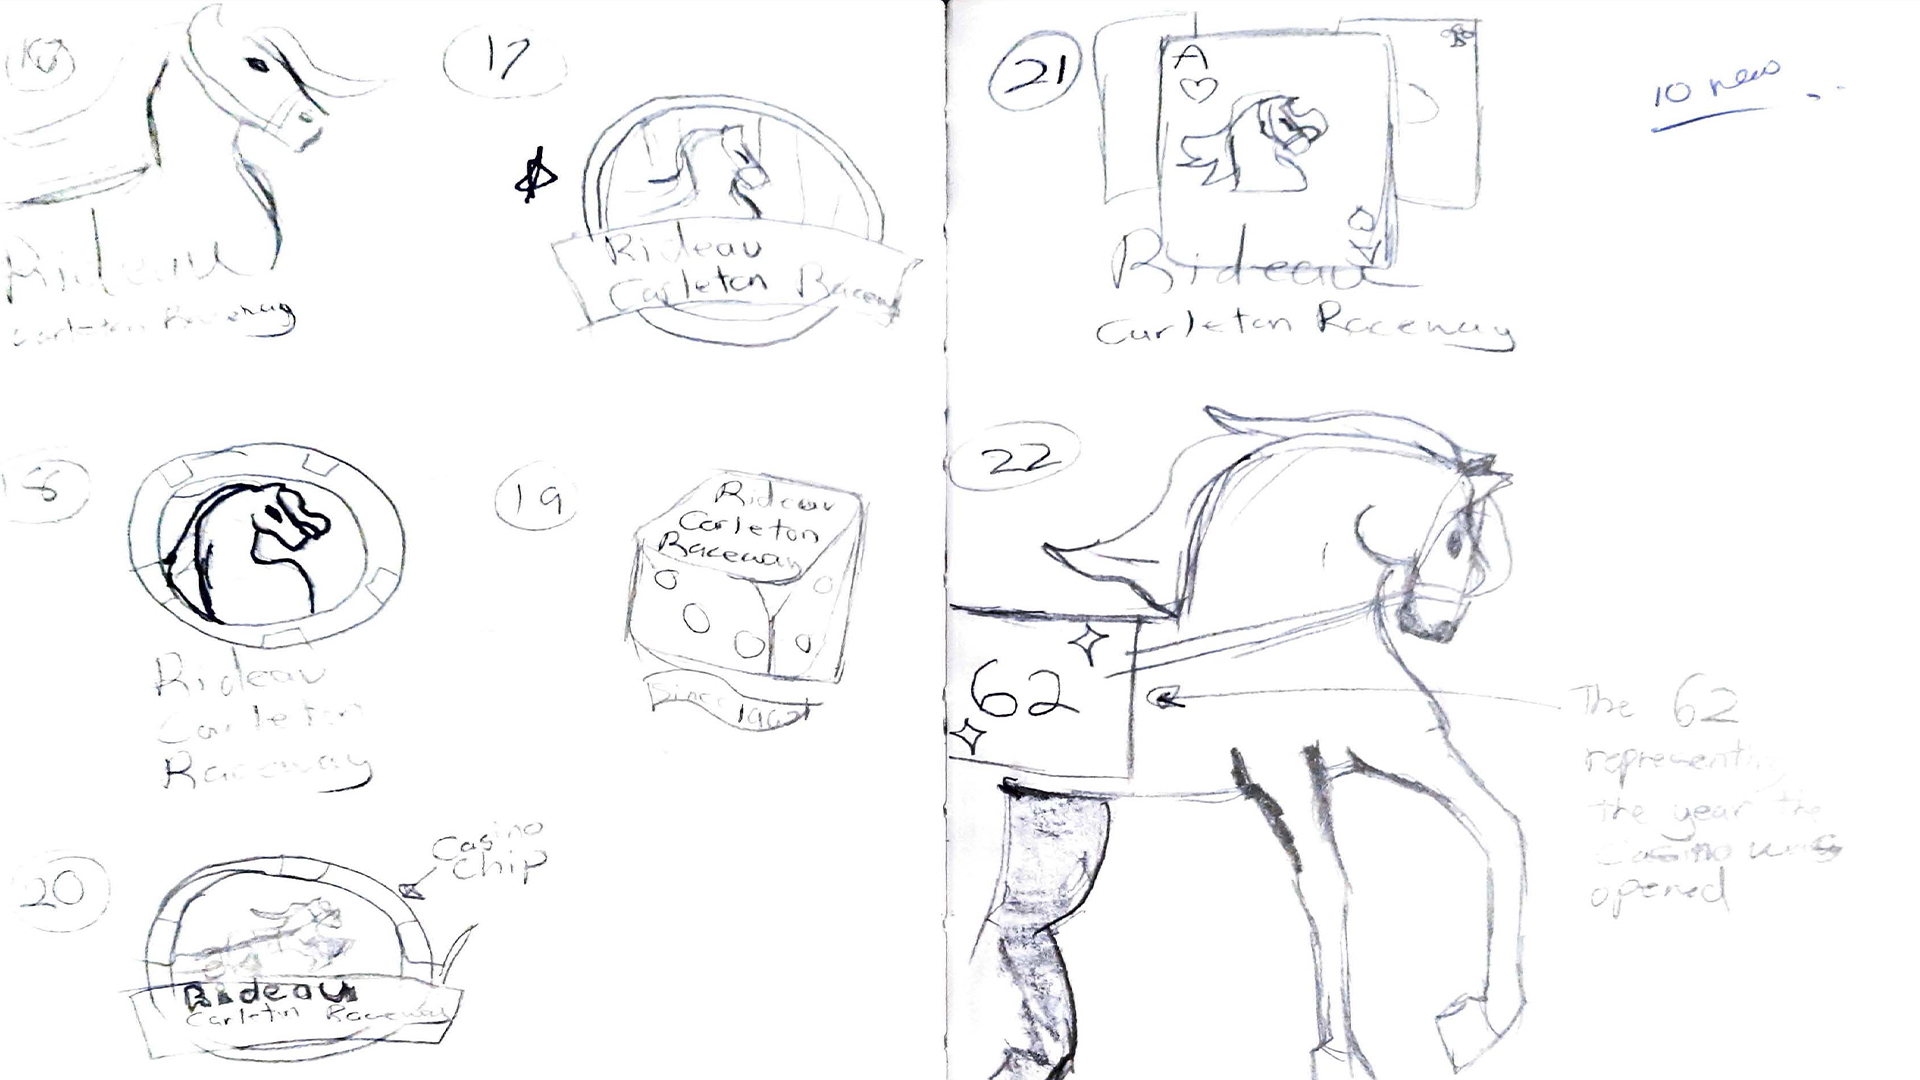 16
Rideau
Carleton Raceway
17
$
Rideau
Carleton Raceway
18
Rideau
Carleton
Raceway
19
Rideau
Carleton
Raceway
Since 1962
20
Casino
Chip
Rideau
Carleton Raceway
21
10 new ...
A
A
Rideau
Carleton Raceway
22
62
The 62
representing
the year the
Casino was
opened